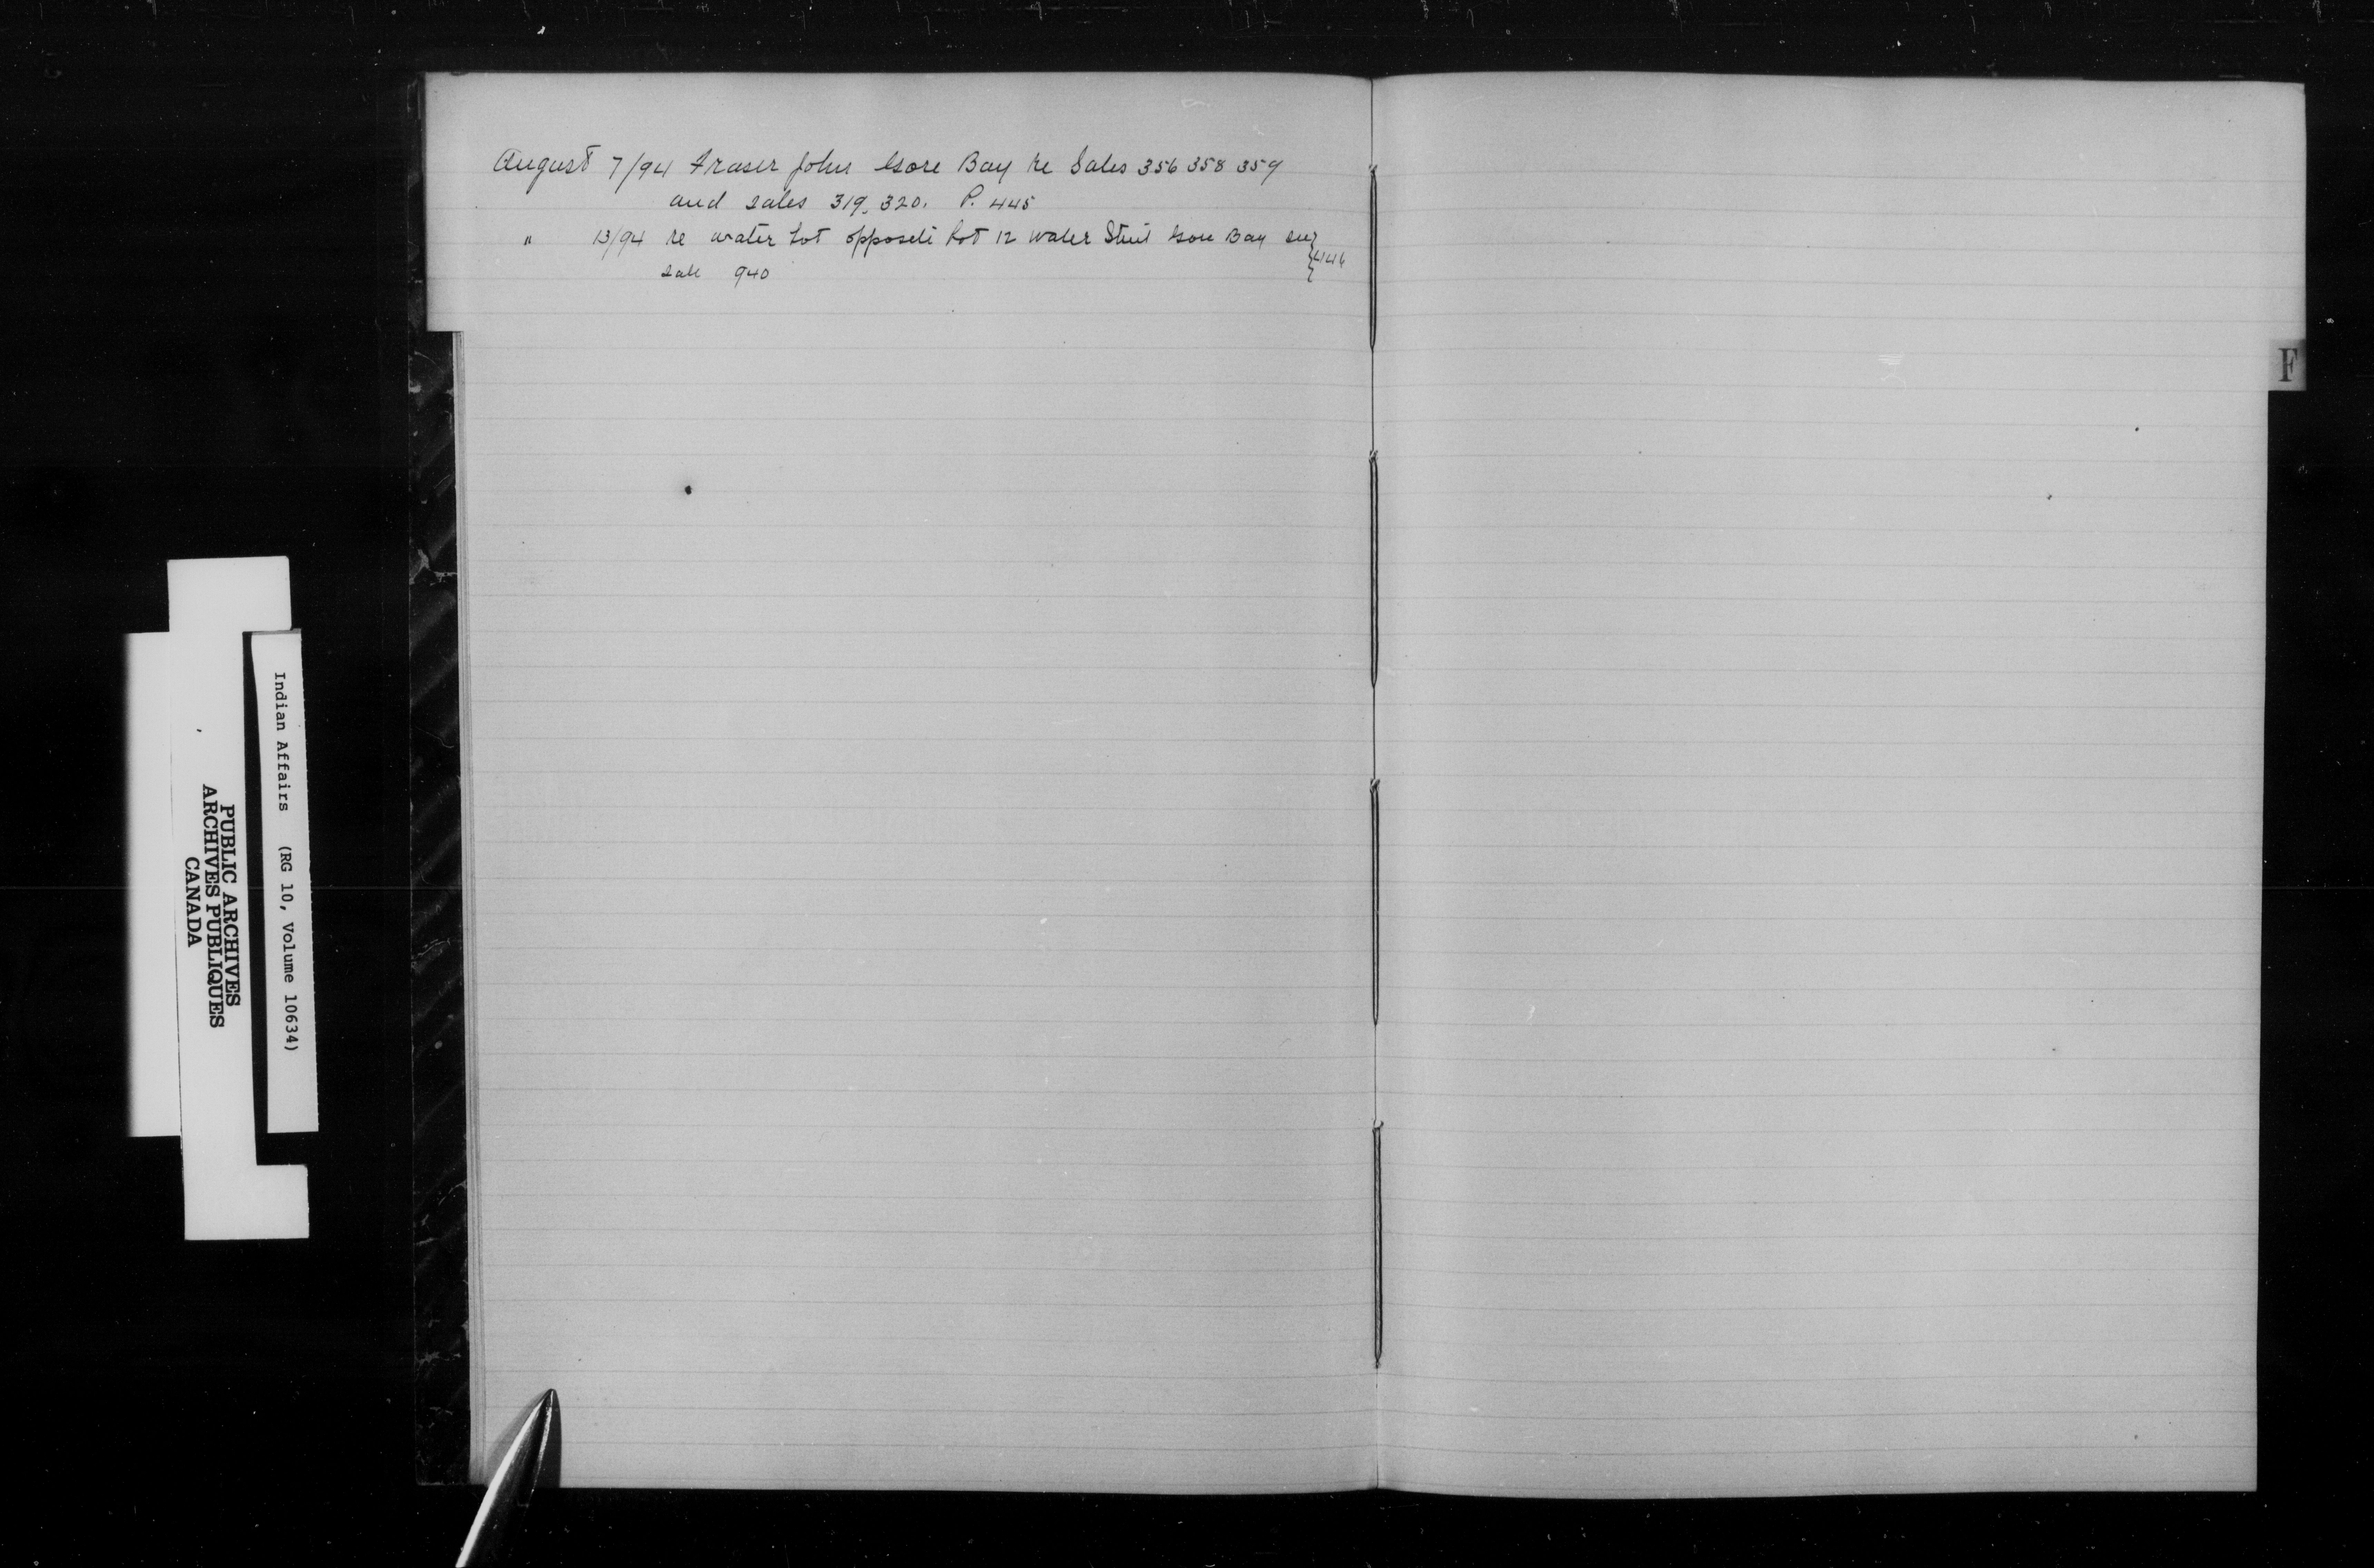 August 7/94 Fraser John Gore Bay re Sales 356 358 359
and sales 319, 320. P. 445
" 13/94 re water Lot opposite Lot 12 Water Street Gore Bay see } 446
sale 940
F
Indian Affairs (RG 10, Volume 10634)
PUBLIC ARCHIVES
ARCHIVES PUBLIQUES
CANADA